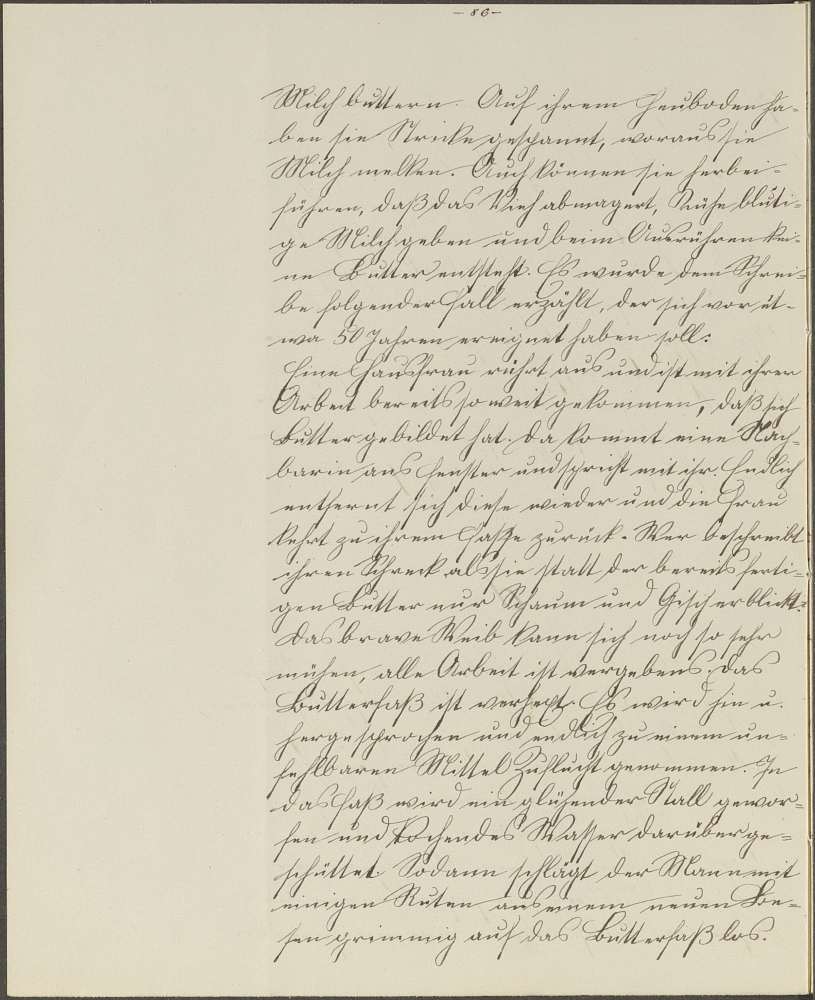 - 86 -
Milch buttern. Auf ihrem Heuboden ha-
ben sie Stricke gespannt, woraus sie
Milch melken. Auch können sie herbei-
führen, daß das Vieh abmagert, Kühe bluti-
ge Milch geben und beim Ausrühren kei-
ne Butter entsteht. Es wurde dem Schrei-
be folgender Fall erzählt, der sich vor et-
wa 50 Jahren ereignet haben soll:
Eine Hausfrau rührt aus und ist mit ihrer
Arbeit bereits so weit gekommen, daß sich
Butter gebildet hat. Da kommt eine Nach-
barin ans Fenster und spricht mit ihr. Endlich
entfernt sich diese wieder und die Frau
kehrt zu ihrem Fasse zurück. Wer beschreibt
ihren Schreck als sie statt der bereits ferti-
gen Butter nur Schaum und Gischt erblickt.
Das brave Weib kann sich noch so sehr
mühen, alle Arbeit ist vergebens. Das
Butterfaß ist verhext. Es wird hin u.
hergesprochen und endlich zu einem un-
fehlbaren Mittel Zuflucht genommen. In
das Faß wird ein glühender Stall gewor-
fen und kochendes Wasser darüber ge-
schüttet. Sodann schlägt der Mann mit
einigen Ruten aus einem neuen Be-
sen grimmig auf das Butterfaß los.